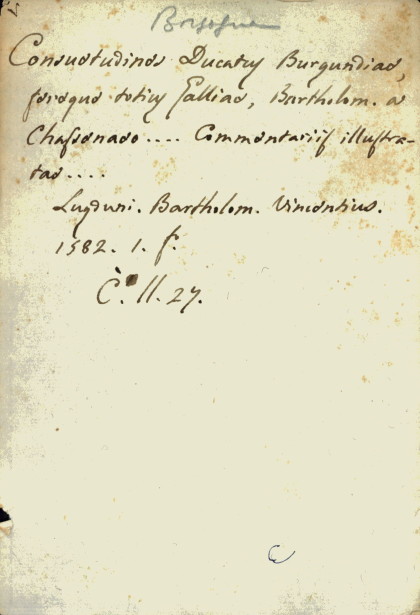 Borgogne
Consuetudines Ducatus Burgundiae,
fereque totius Galliae, Bartholom. a
Chassenaeo.... Commentariis illustra-
tae....
Lugduni. Bartholom. Vincentius.
1582. 1. f.
C. II. 27.